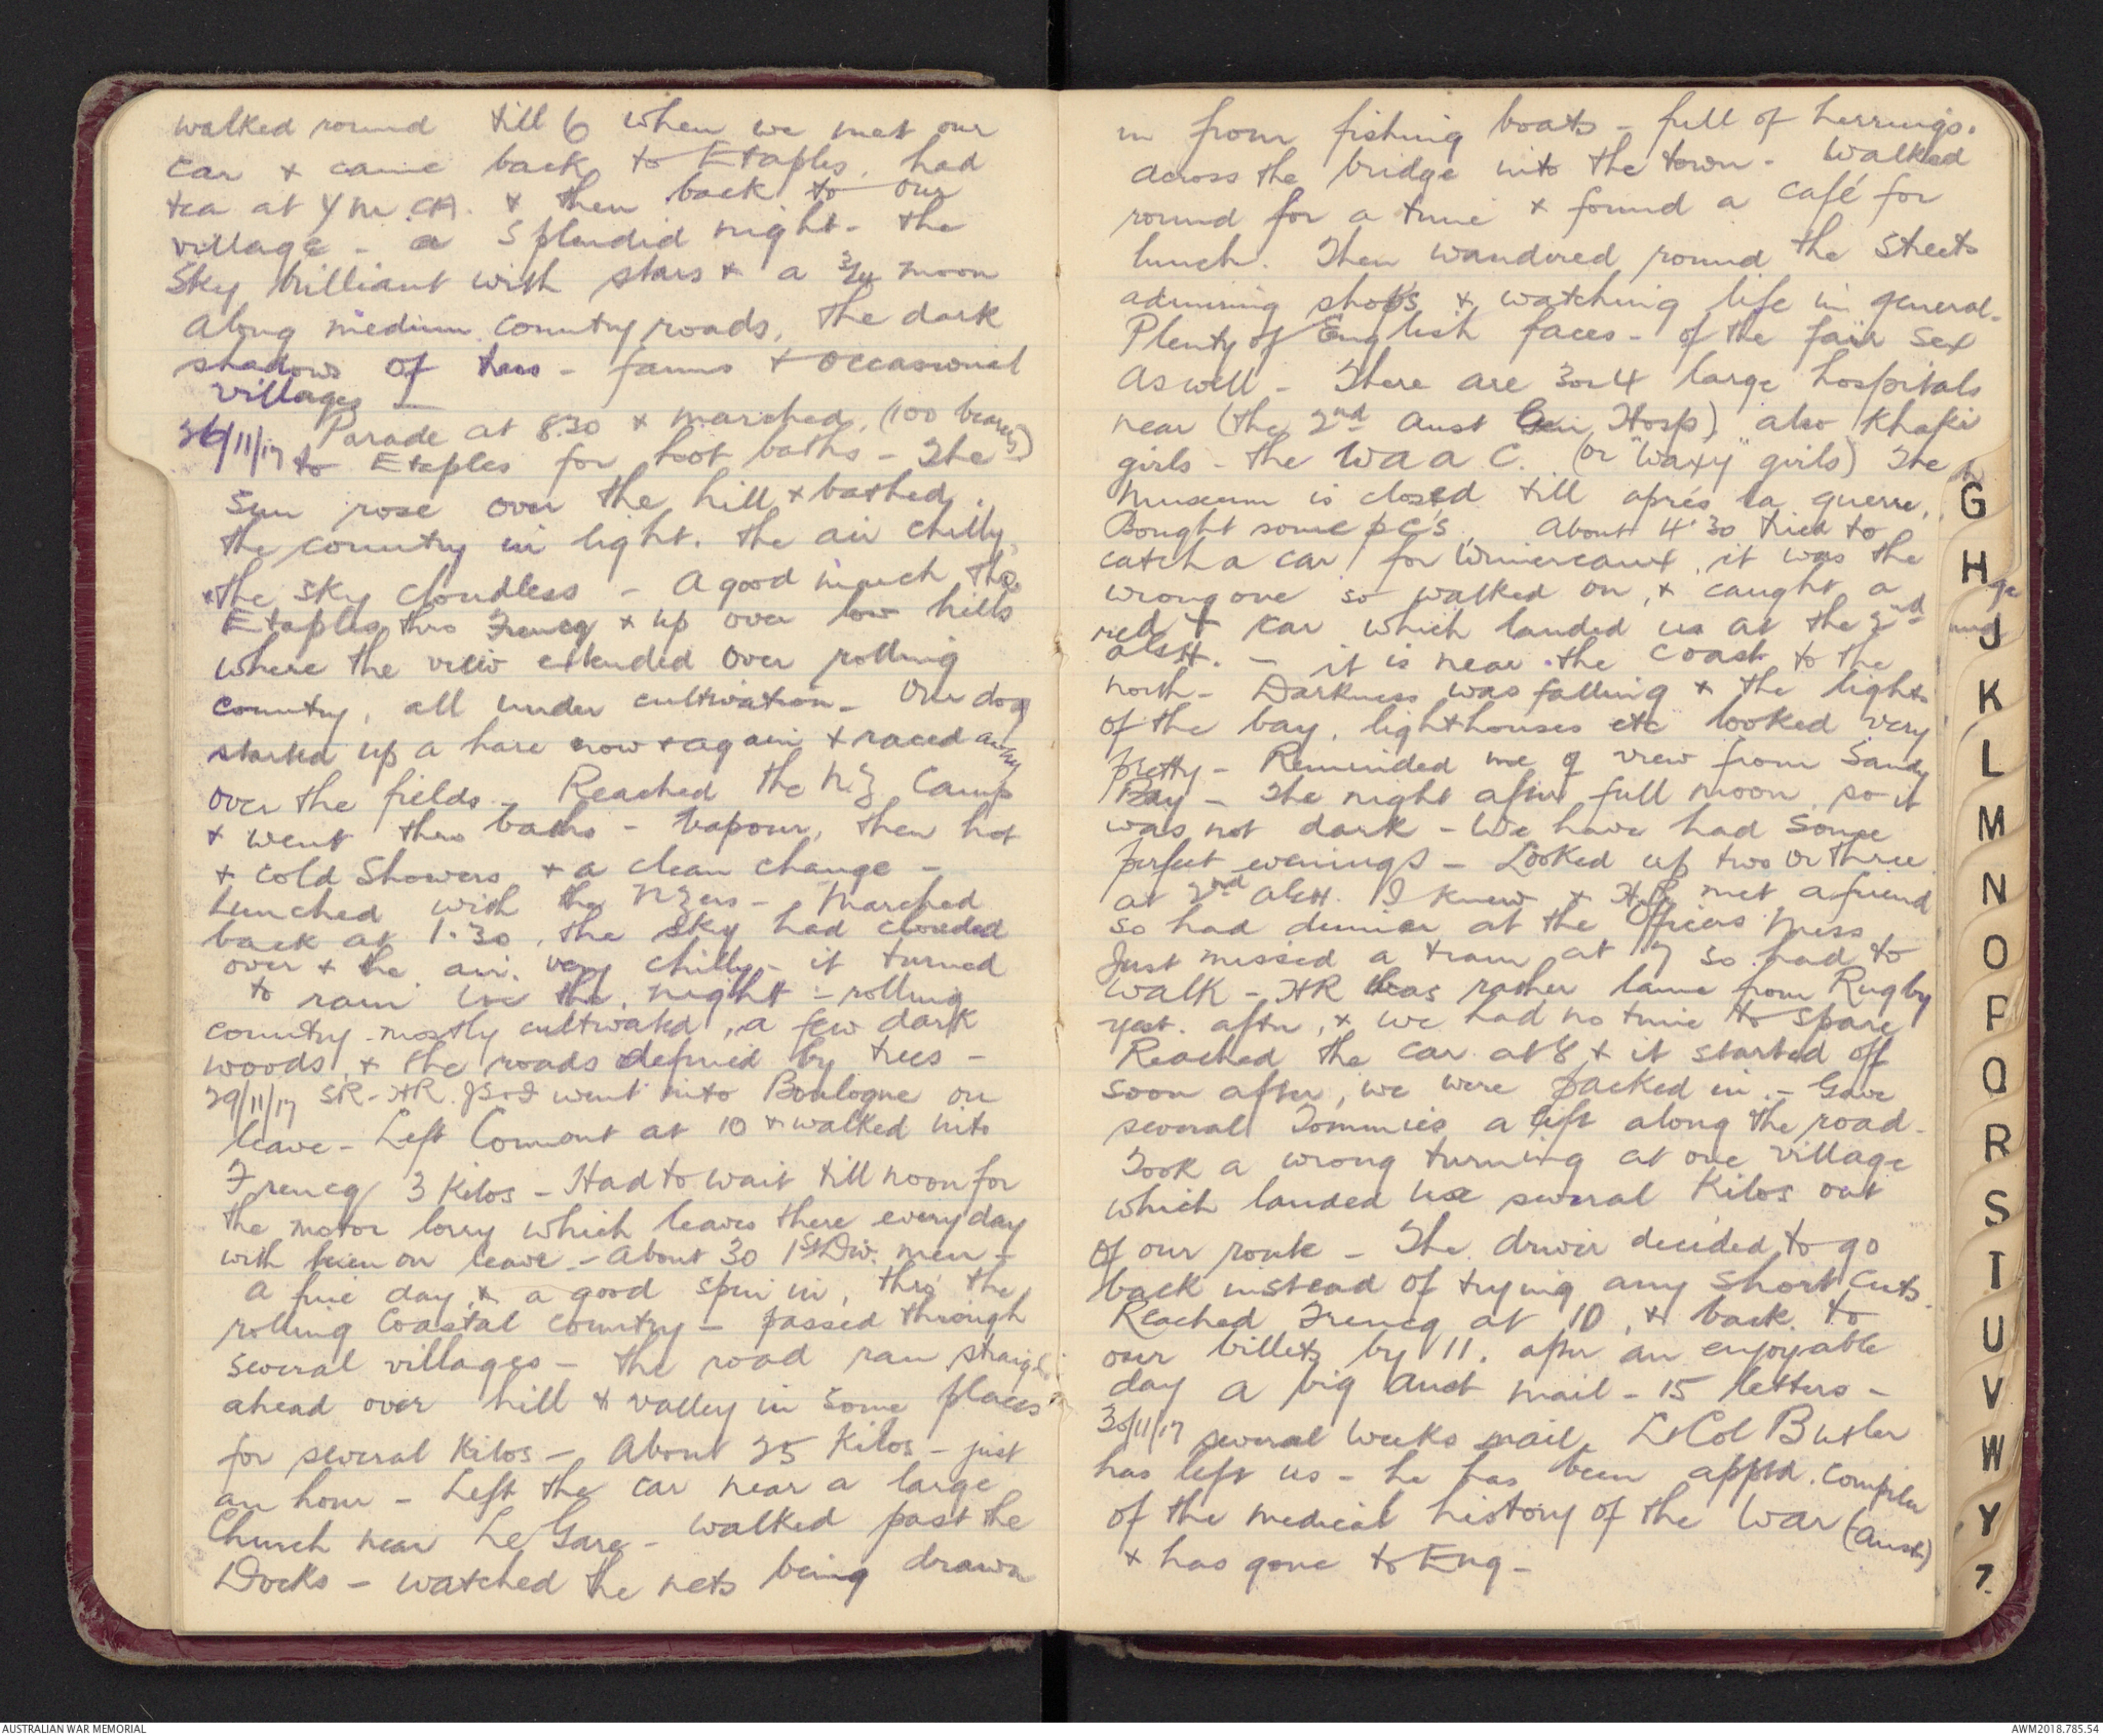 walked round till 6 when we met our
car & came back to Etaples, had
tea at Y.M.C.A. & then back to our
village - a splendid night - the
sky brilliant with stars & a 3/4 moon
along medium country roads, the dark
shadows of trees - farms & occasional
villages -
26/11/17 Parade at 8.30 & marched, (100 bearers)
to Etaples for hot baths - The
sun rose over the hill & bathed
the country in light. the air chilly,
& the sky cloudless - A good march thro
Etaples thro Frencq & up over low hills
where the view extended over rolling
country, all under cultivation - Our dog
started up a hare now & again & raced away
over the fields - Reached the N.Z. Camp
& went thro baths - Vapour, then hot
& cold showers & a clean change -
Lunched with the NZers - Marched
back at 1.30, the sky had clouded
over & the air very chilly - it turned
to rain in the night - rolling
country mostly cultivated, a few dark
woods, & the roads defined by trees -
29/11/17 SR - HR. JB & I went into Boulogne on
leave - Left Cormont at 10 & walked into
Frencq 3 Kilos - Had to wait till noon for
the motor lorry which leaves there every day
with men on leave - About 30 1st Div. men -
a fine day, & a good spin in, thro' the
rolling Coastal country - passed through
several villages - the road ran straight
ahead over hill & valley in some places
for several Kilos - About 25 Kilos - just
an hour - Left the car near a large
Church near Le Gare - walked past the
Docks - watched the nets being drawn
in from fishing boats - full of herrings.
across the bridge into the town - Walked
round for a time & found a café for
lunch. Then wandered round the streets
admiring shops & watching life in general.
Plenty of English faces - of the fair sex
as well - There are 3 or 4 large hospitals
near (the 2nd Aust Gen Hosp) also Khaki
girls - the W a a C. (or "Waxy" girls) The
Museum is closed till aprés la guerre,
Bought some pc's. About 4.30 tried to
catch a car for Wimereaux, it was the
wrong one so walked on, & caught a
red + car which landed us at the 2nd
AGH. - it is near the coast to the
north - Darkness was falling & the lights
of the bay, lighthouses etc looked very
pretty - Reminded me of view from Sandy
Bay - The night after full moon, so it
was not dark - We have had some
perfect evenings - Looked up two or three
at 2nd AGH. I knew & HR met a friend
so had dinner at the Officers Mess
Just missed a tram at 7 so had to
walk - HR was rather lame from Rugby
yest. aftn, & we had no time to spare
Reached the car at 8 & it started off
soon after, we were packed in - Gave
several Tommies a lift along the road -
Took a wrong turning at one village
which landed us several Kilos out
of our route - The driver decided to go
back instead of trying any short cuts.
Reached Frencq at 10, & back to
our billets by 11. after an enjoyable
day a big Aust mail - 15 letters -
30/11/17 several weeks mail, Lt Col Butler
has left us - he has been apptd. Compiler
of the medical history of the War (Aust)
& has gone to Eng -
G
H
J
K
L
M
N
O
P
Q
R
S
T
U
V
W
Y
AUSTRALIAN WAR MEMORIAL
AWM2018.785.54